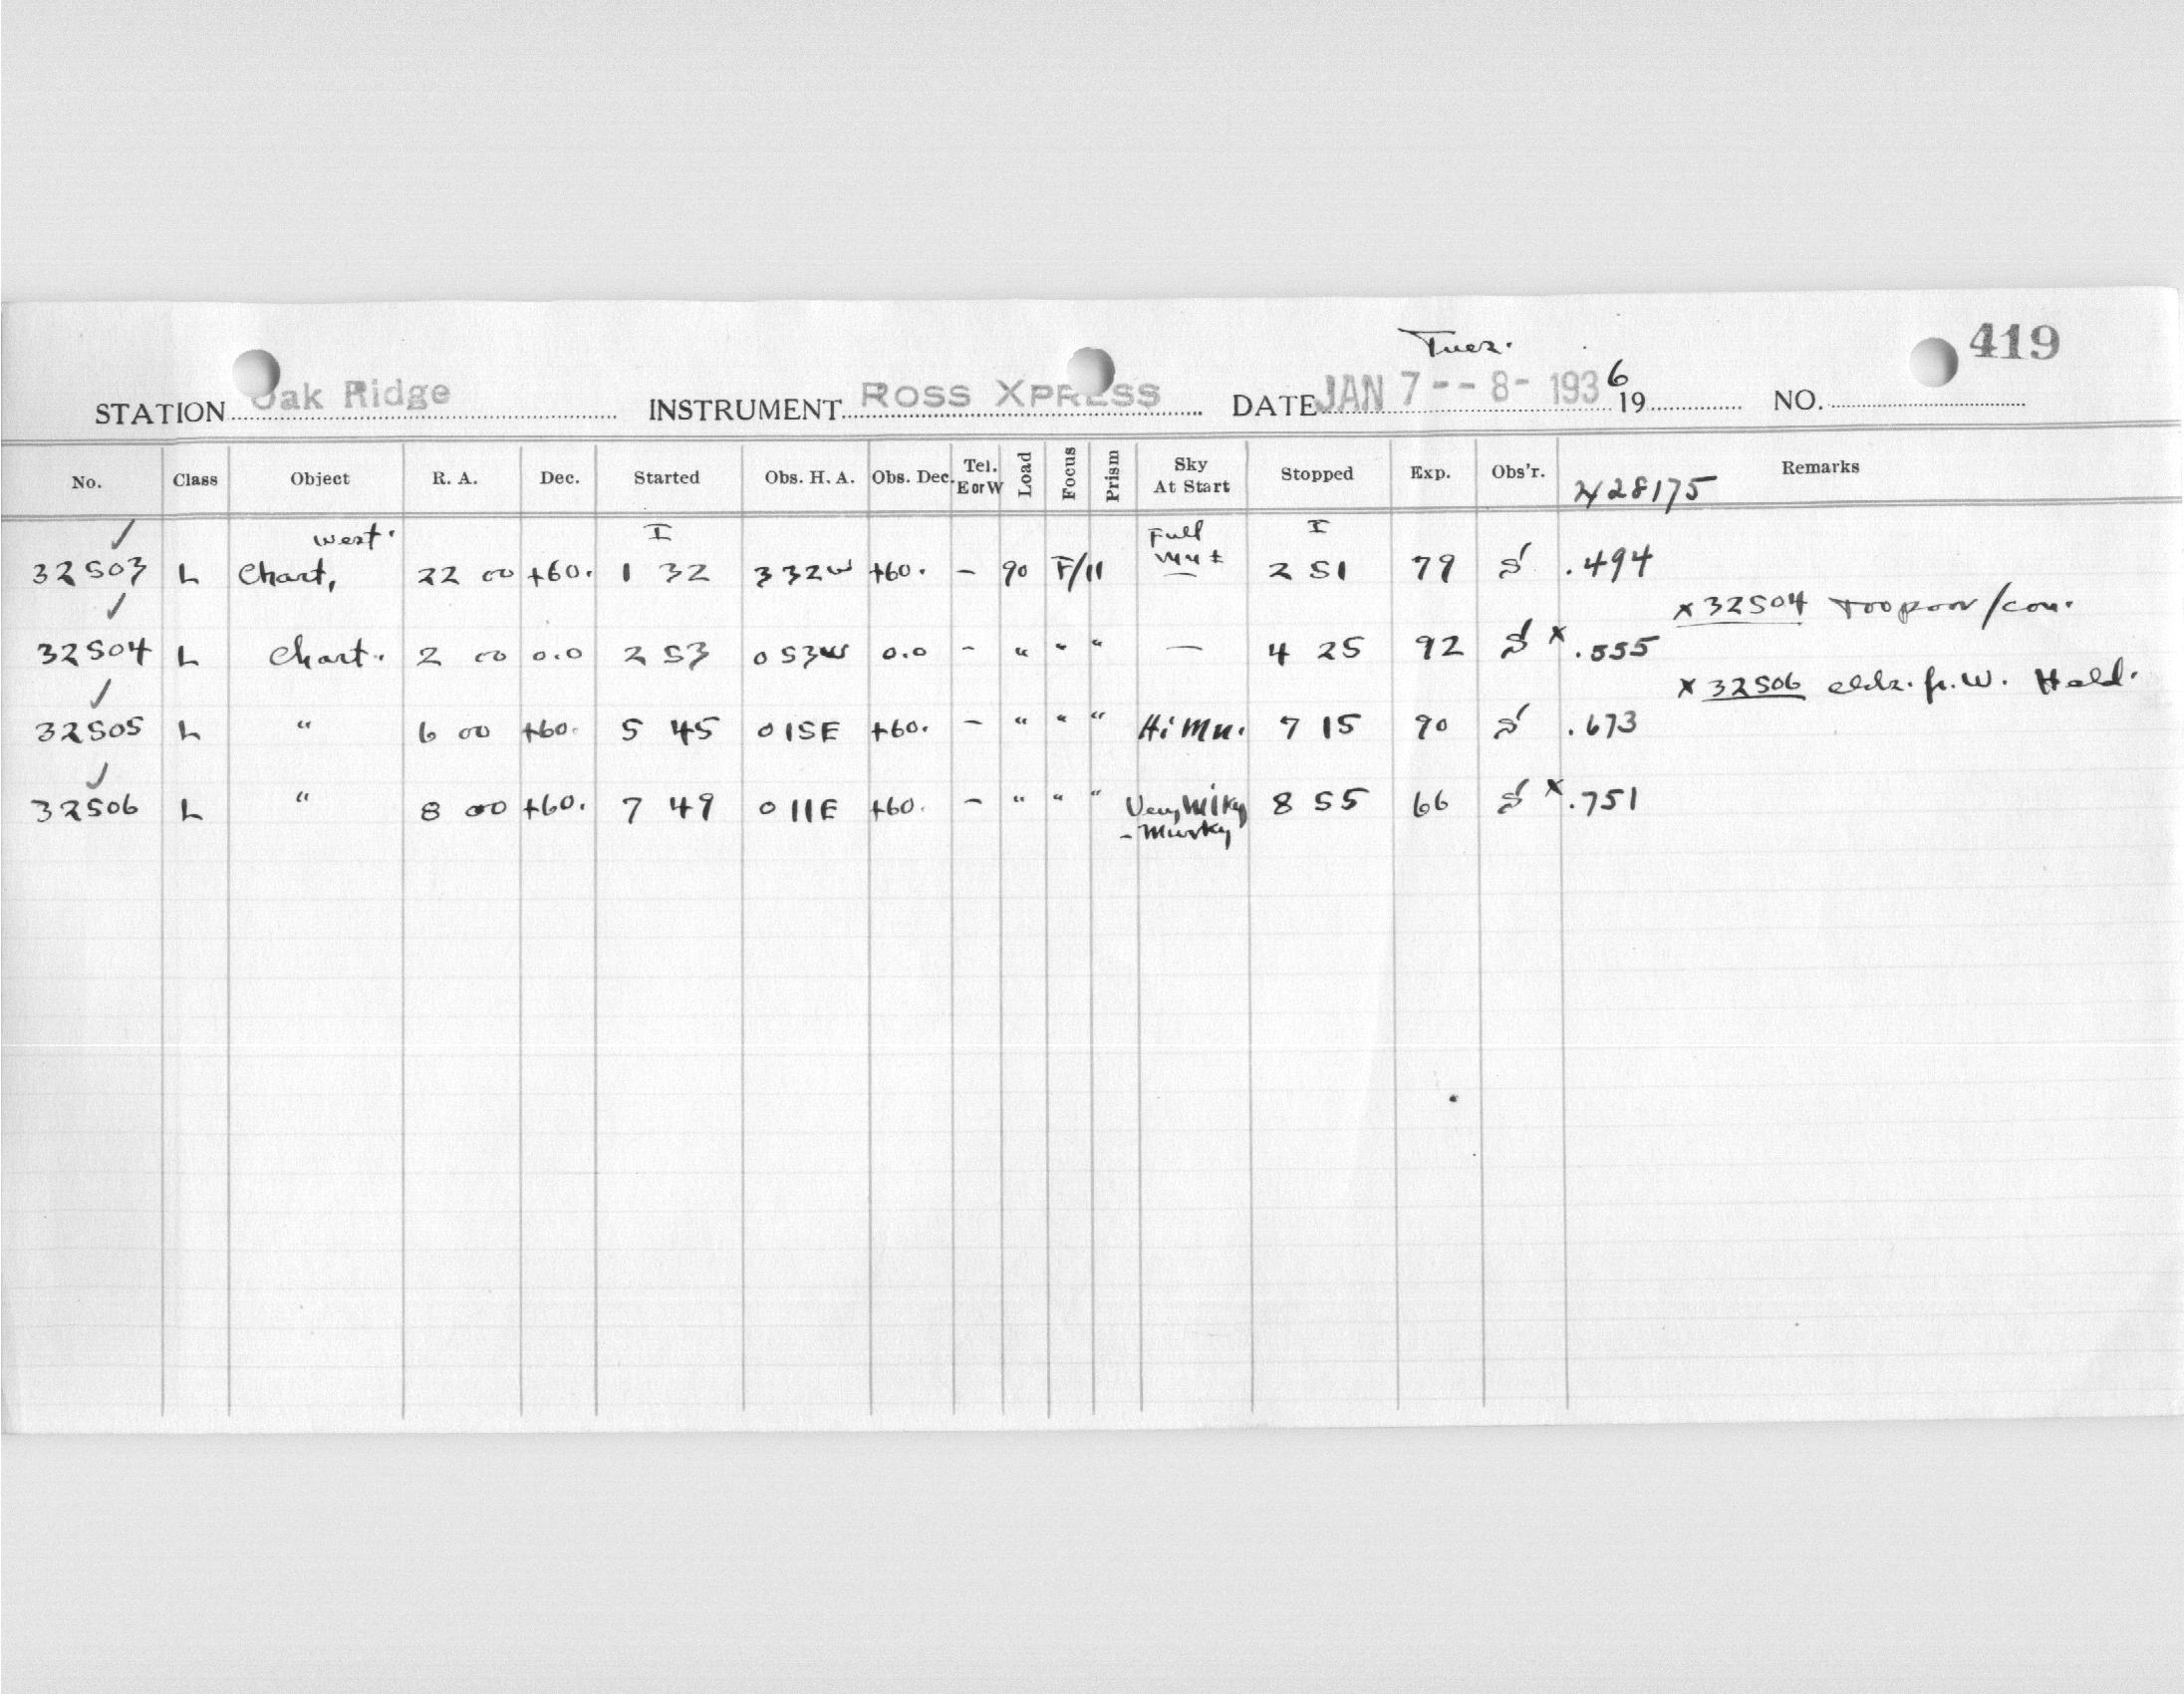 Tues.
419
STATION Oak Ridge INSTRUMENT ROSS XPRESS DATE JAN 7 -- 8 - 1936 19 NO.
No. Class Object R. A. Dec. Started Obs. H. A. Obs. Dec. Tel. E or W Load Focus Prism Sky At Start Stopped Exp. Obs'r. Remarks
2428175
✓ west. I Full I
32503 L Chart, 22 00 +60. 1 32 3 32W +60. - 90 F/11 Mn ± 2 51 79 S .494
✓ x 32504 too poor / con.
32504 L Chart. 2 00 0.0 2 53 0 53W 0.0 - " " " — 4 25 92 S x .555
✓ x 32506 Held.
32505 L " 6 00 +60. 5 45 0 15E +60. - " " " Hi Mn. 7 15 90 S .673
✓
32506 L " 8 00 +60. 7 49 0 11E +60. - " " " Very Milky 8 55 66 S x .751
- Murky